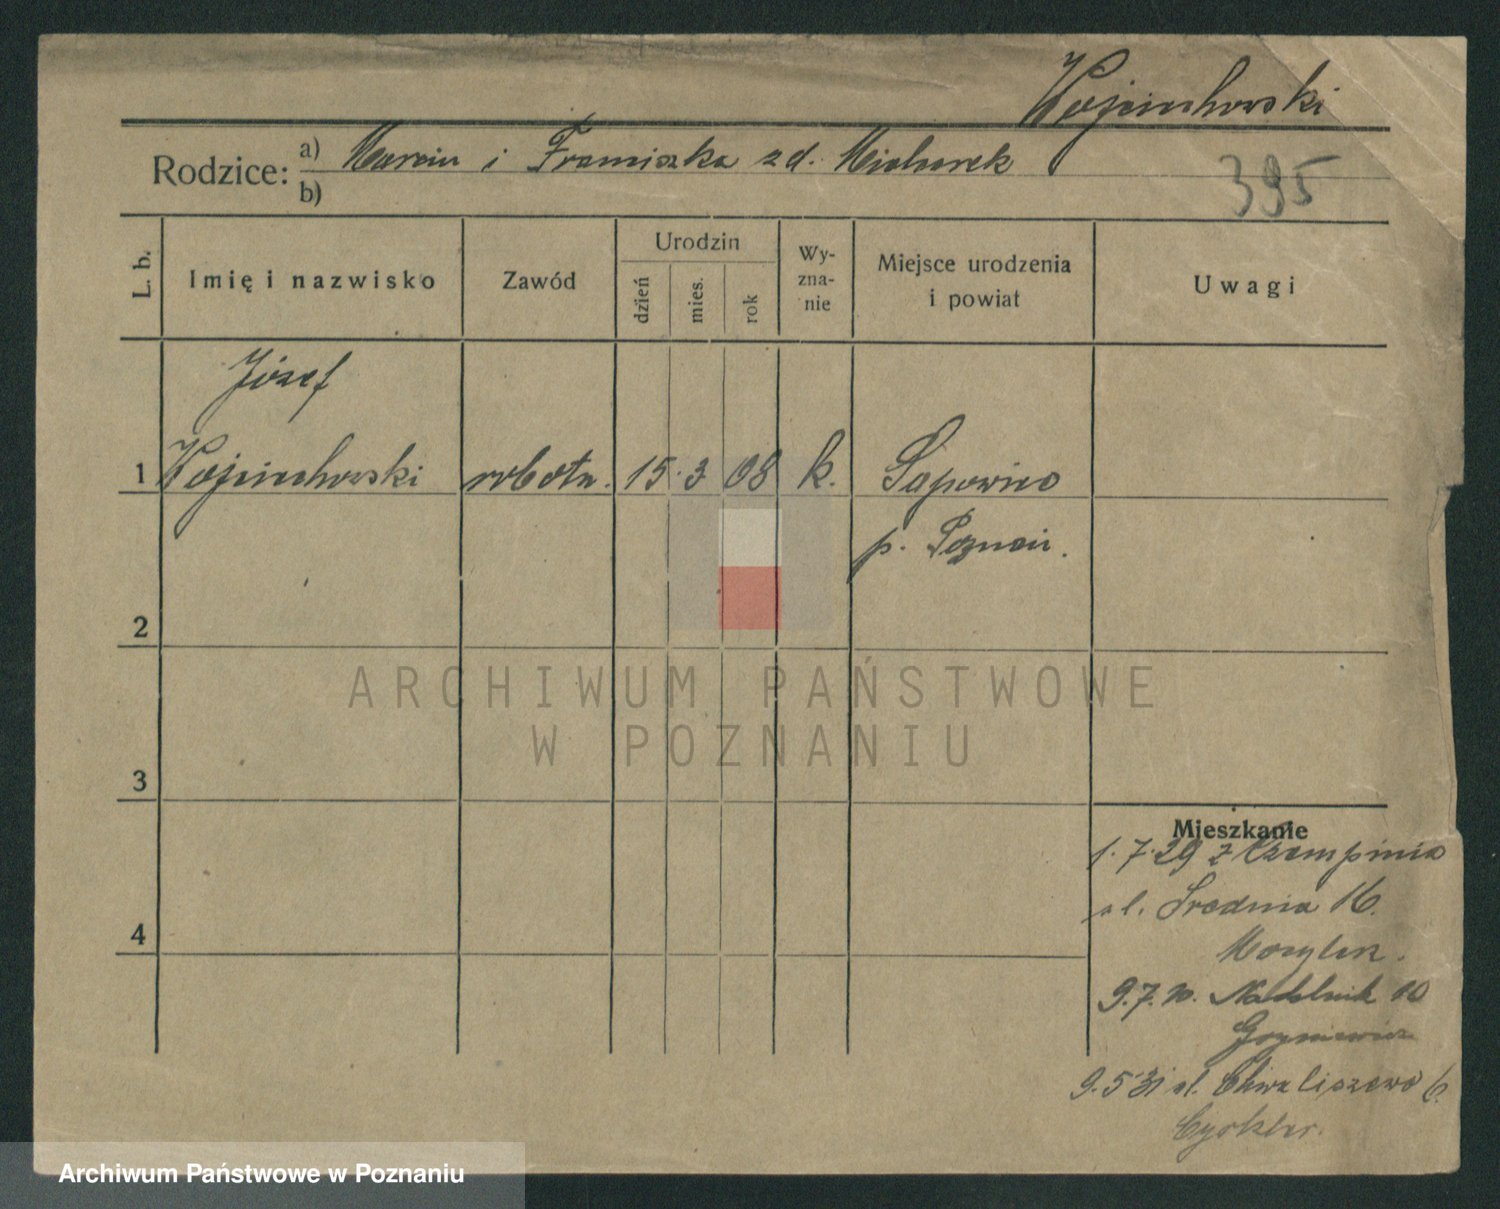 Wojciechowski
Rodzice: a) Marcin i Franciszka zd. Michorek
b)
395
L. b.
Imię i nazwisko
Zawód
Urodzin
dzień
mies.
rok
Wy-
zna-
nie
Miejsce urodzenia
i powiat
Uwagi
Józef
1 Wojciechowski robotn. 15. 3 08 k. Sapowice
p. Poznań.
2
ARCHIWUM PAŃSTWOWE
W POZNANIU
3
Mieszkanie
1.7.29 z Czempinia
ul. Średnia 16.
4
9.7.30. Nadolnik 10
9.5 31 ul. Chwaliszewo
Archiwum Państwowe w Poznaniu